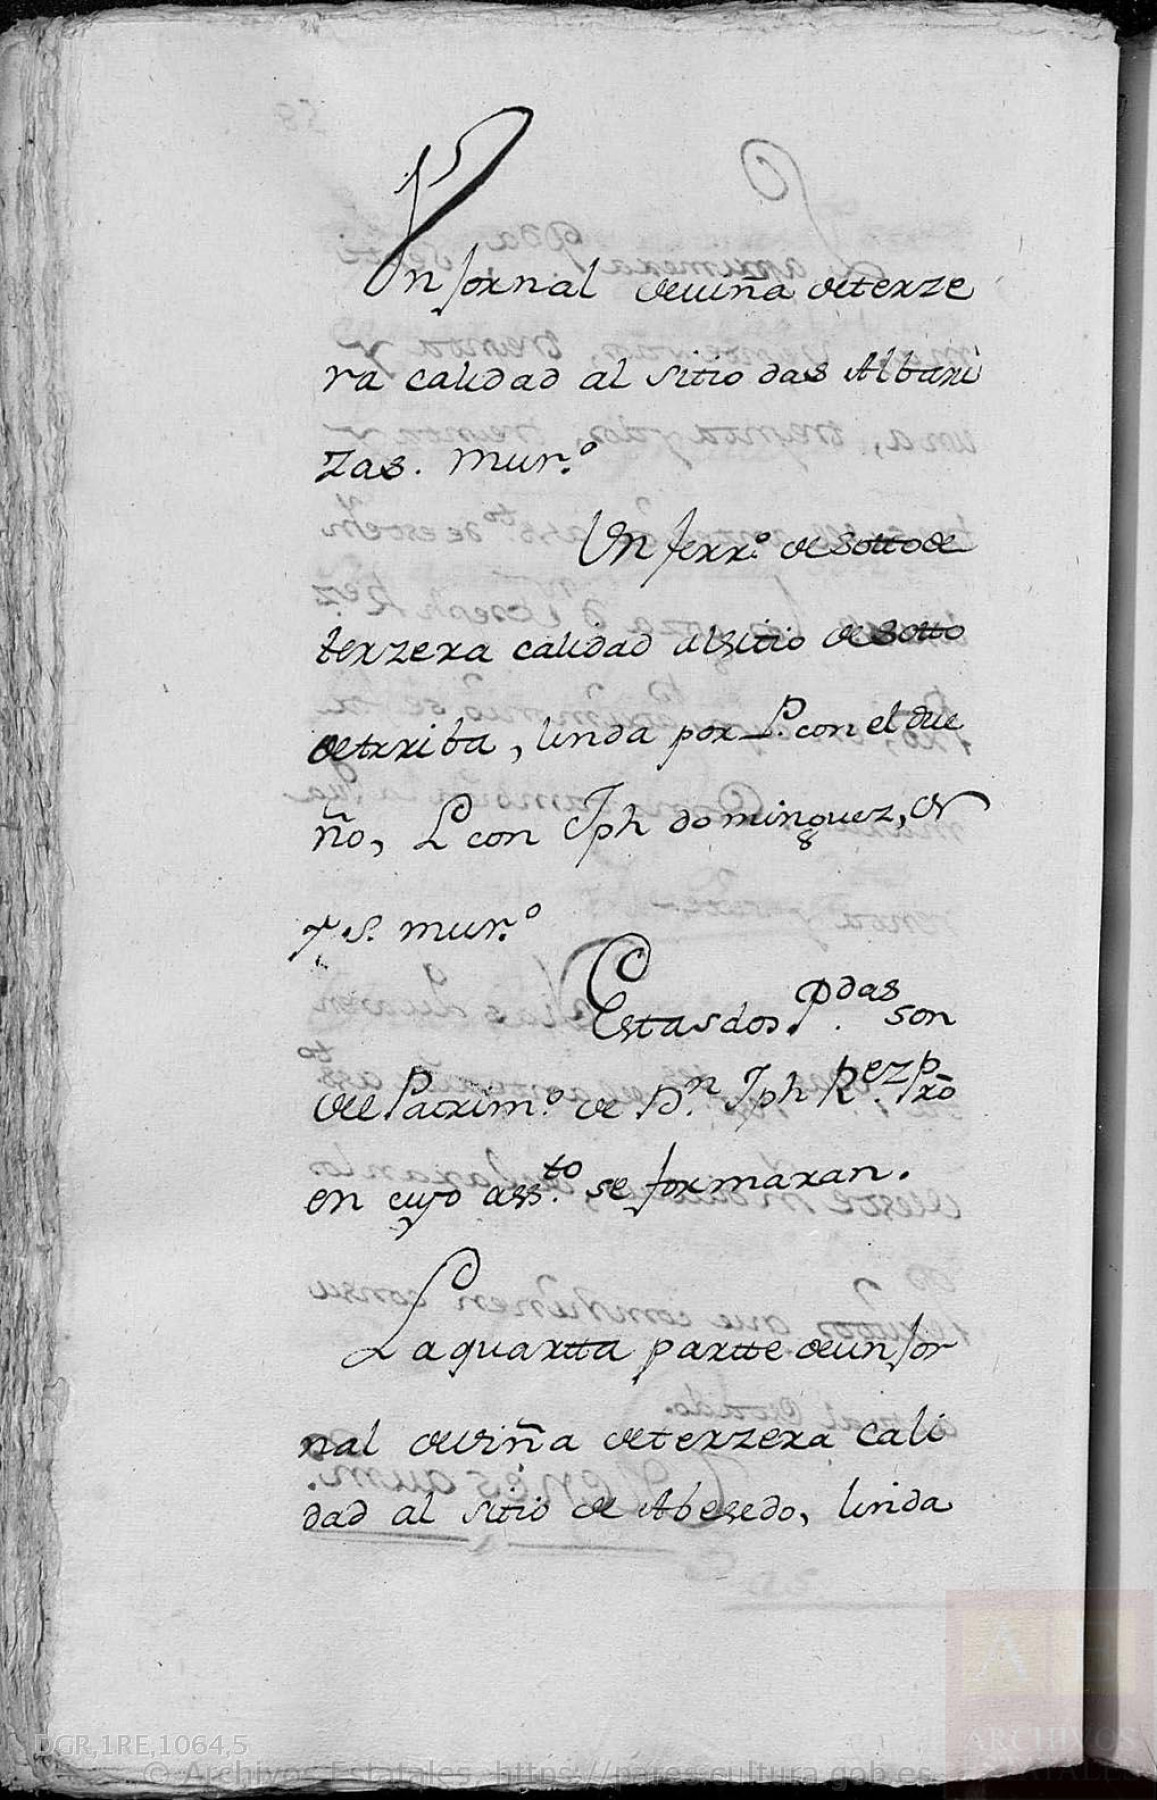 Un Jornal de viña de terze
ra calidad al sitio das Albari
zas. Mur.º
Un ferr.º de Sotto de
terzera calidad al sitio de Sotto
de trriba, linda por P. con el due
ño, L con Jph dominguez, N
y s. mur.º
Estas dos P.das son
del Patrim.º de D.n Jph R.ez Pro
en cuyo ass.to se formaran.
La quartta partte de un Jor
nal de viña de terzera cali
dad al sitio de Abesedo, linda
DGR,1RE,1064,5
© Archivos Estatales, https://pares.cultura.gob.es
AE
ARCHIVOS
ESTATALES